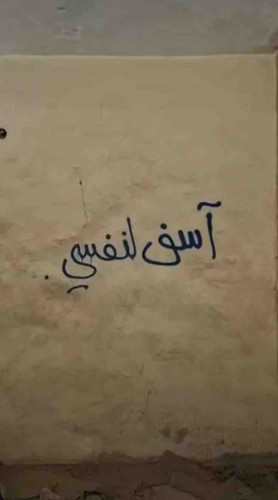 آسف لنفسي .